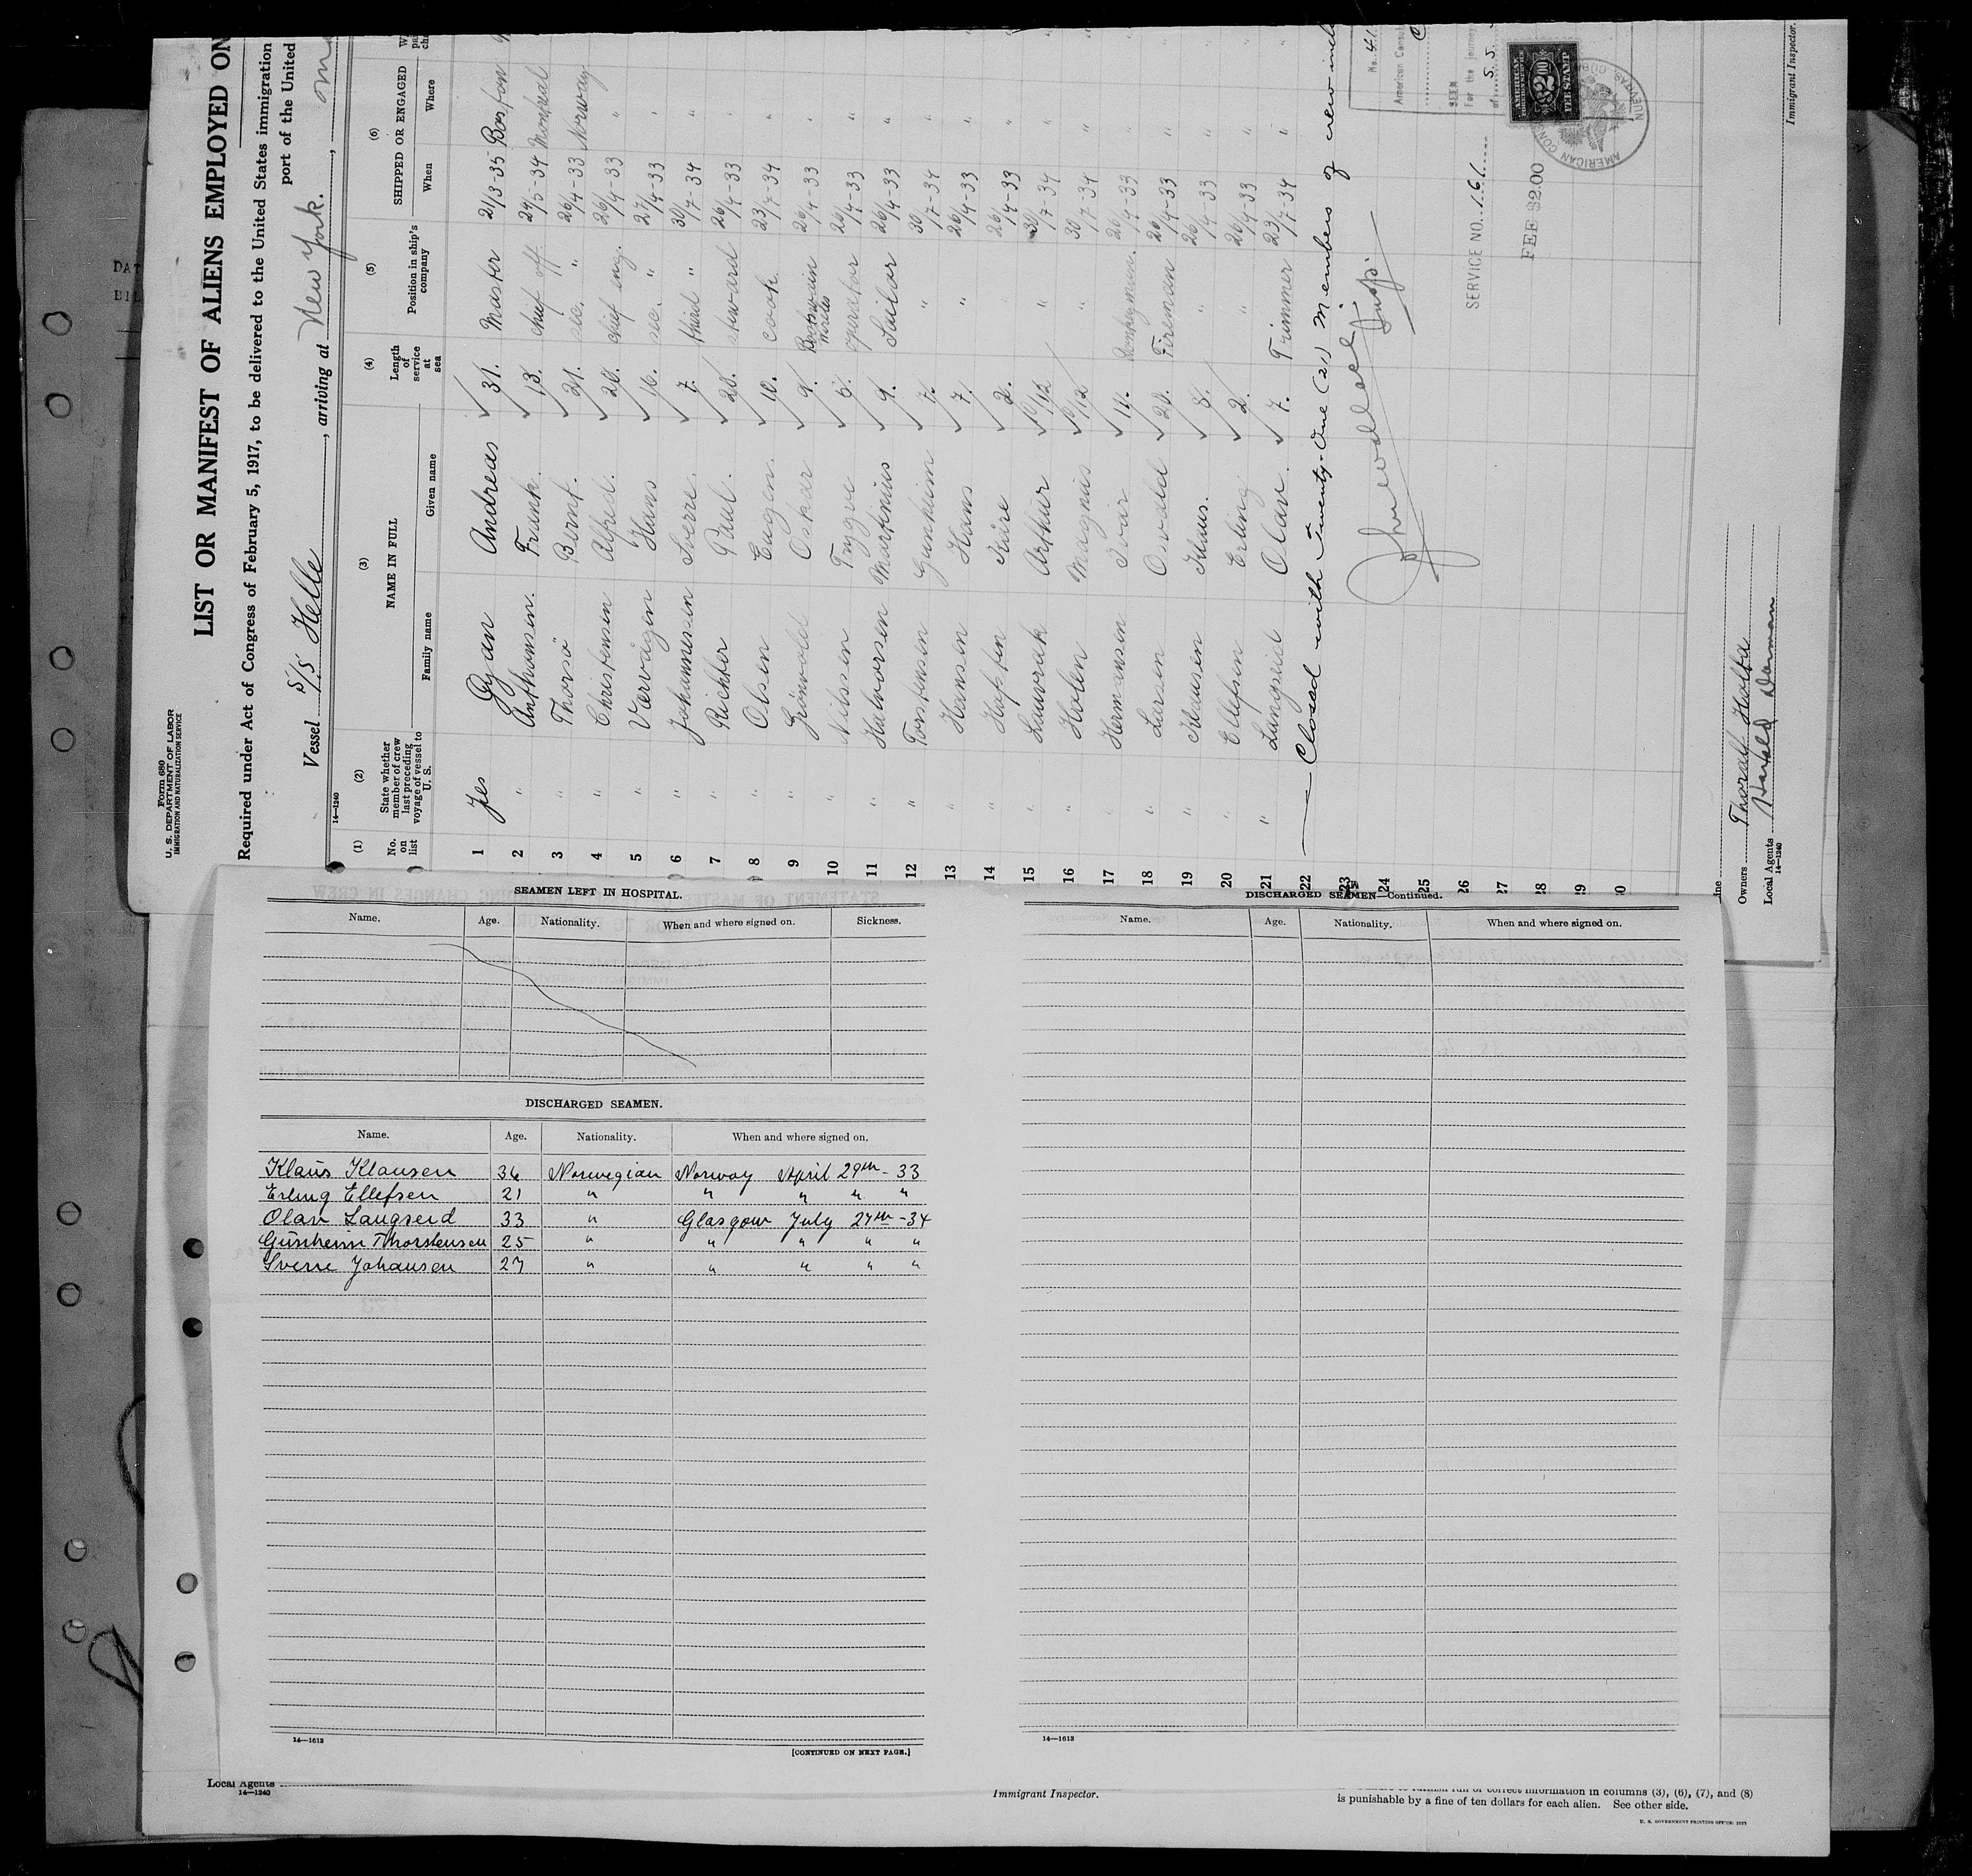 Form 680
U. S. DEPARTMENT OF LABOR
IMMIGRATION AND NATURALIZATION SERVICE
LIST OR MANIFEST OF ALIENS EMPLOYED ON
Required under Act of Congress of February 5, 1917, to be delivered to the United States immigration
port of the United
Vessel S/S Helle, arriving at New York.,
14—1240
(1) (2) (3) (4) (5) (6)
No. on list State whether member of crew last preceding voyage of vessel to U. S. NAME IN FULL Length of service at sea Position in ship's company SHIPPED OR ENGAGED
Family name Given name When Where
1 Yes Gjan Andreas 31. Master 21/3-35 Boston
2 " Anthonsen. Frank. 13. chief off. 24/5-34 Montreal
3 " Thorsö Bernt. 31. sec. " 26/4-33 Norway
4 " Christensen Alfred. 20. chief eng. 26/4-33 "
5 " Værvågen Hans 16. sec. " 27/4-33 "
6 " Johannessen Sverre. 7. third " 30/7-34 "
7 " Richter Paul. 20. steward 26/4-33 "
8 " Olsen Eugen. 10. cook 23/7-34 "
9 " Grönvold Oskar 9. Boatswain 26/4-33 "
10 " Nilssen Trygve 5. operator 26/4-33 "
11 " Halvorsen Martinius 9. Sailor 26/4-33 "
12 " Torstensen Gunheim 7. " 30/7-34 "
13 " Hansen Hans 7. " 26/4-33 "
14 " Haftin Kåre 2. " 26/4-33 "
15 " Laurrak Arthur 10/12 " 30/7-34 "
16 " Holen Magnus 10/12 " 30/7-34 "
17 " Hermansen Ivar 14. Donkeyman. 26/4-33 "
18 " Larsen Osvald 20. Fireman 26/4-33 "
19 " Klausen Klaus. 8. " 26/4-33 "
20 " Ellefsen Erling 2. " 26/4-33 "
21 " Langseid Olav. 7. Trimmer 23/7-34 "
22 Closed with Twenty-One (21) Members of crew incl
23
24
25
26
27
28
29
30
No. 41
American Consul
SEEN
For the journey
of S.S.
SERVICE NO. 161
FEE $2.00
AMERICAN
$2.00
FEE STAMP
AMERICAN CONS
Immigrant Inspector.
Owners Thorolf Holta
Local Agents Harald Dorman
14—1240
SEAMEN LEFT IN HOSPITAL.
Name. Age. Nationality. When and where signed on. Sickness.
DISCHARGED SEAMEN.
Name. Age. Nationality. When and where signed on.
Klaus Klausen 36 Norwegian Norway April 29th - 33
Erling Ellefsen 21 " " " " "
Olav Laugseid 33 " Glasgow July 27th - 34
Gunheim Thorstensen 25 " " " " "
Sverre Johansen 27 " " " " "
14—1613
[CONTINUED ON NEXT PAGE.]
DISCHARGED SEAMEN—Continued.
Name. Age. Nationality. When and where signed on.
14—1613
Local Agents
14—1240
Immigrant Inspector.
correct information in columns (3), (6), (7), and (8)
is punishable by a fine of ten dollars for each alien. See other side.
U. S. GOVERNMENT PRINTING OFFICE: